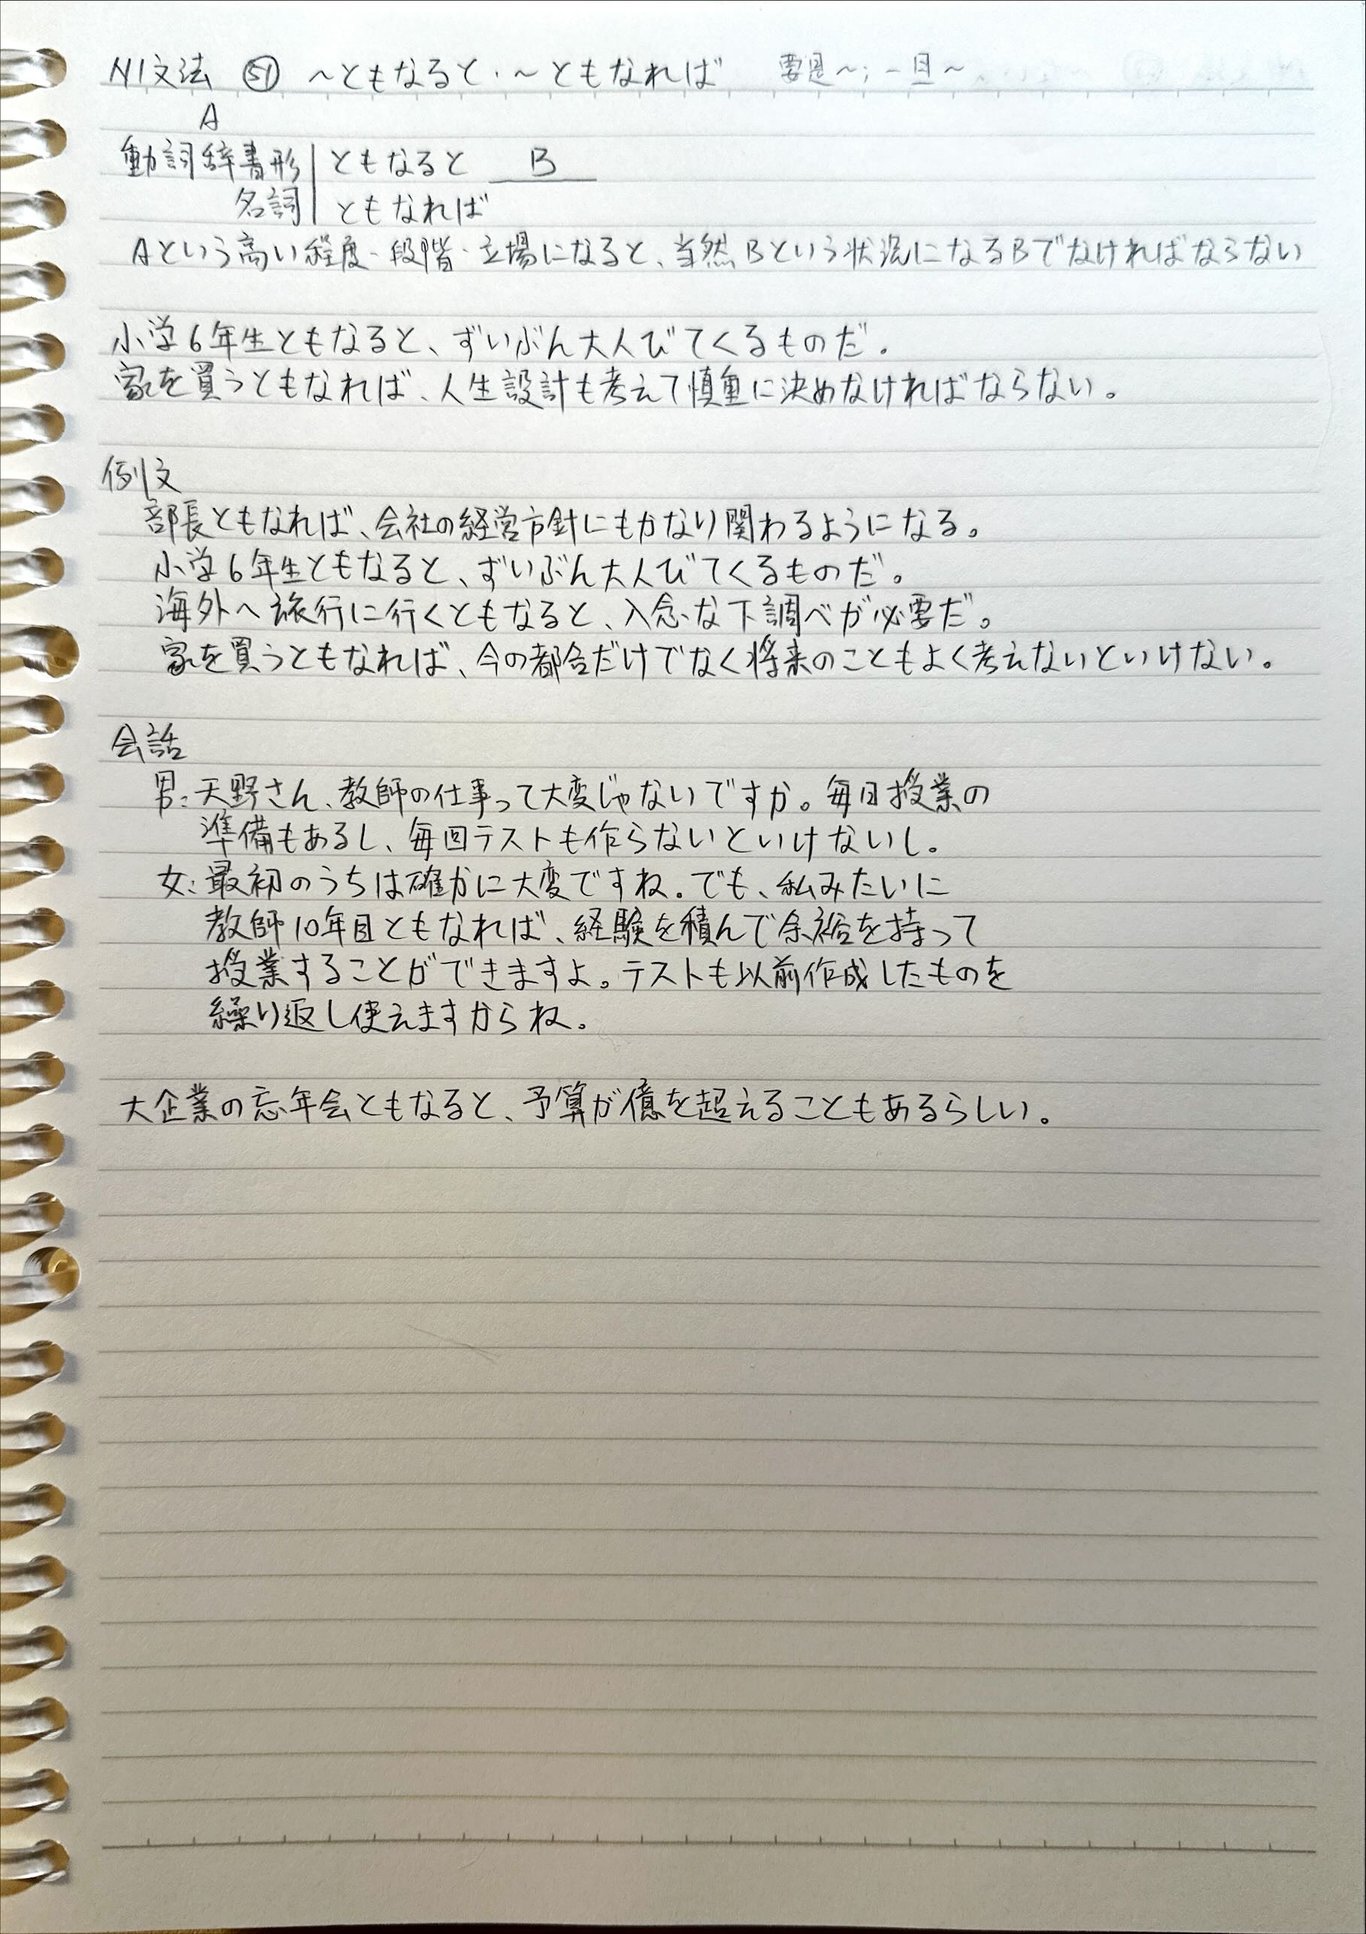 N1文法 ㊿① ～ともなると・～ともなれば 要是～；一旦～
A
動詞辞書形 ともなると B
名詞 ともなれば
Aという高い程度・段階・立場になると、当然Bという状況になるBでなければならない
小学6年生ともなると、ずいぶん大人びてくるものだ。
家を買うともなれば、人生設計も考えて慎重に決めなければならない。
例文
部長ともなれば、会社の経営方針にもかなり関わるようになる。
小学6年生ともなると、ずいぶん大人びてくるものだ。
海外へ旅行に行くともなると、入念な下調べが必要だ。
家を買うともなれば、今の都合だけでなく将来のこともよく考えないといけない。
会話
男：天野さん、教師の仕事って大変じゃないですか。毎日授業の
準備もあるし、毎回テストも作らないといけないし。
女：最初のうちは確かに大変ですね。でも、私みたいに
教師10年目ともなれば、経験を積んで余裕を持って
授業することができますよ。テストも以前作成したものを
繰り返し使えますからね。
大企業の忘年会ともなると、予算が億を超えることもあるらしい。